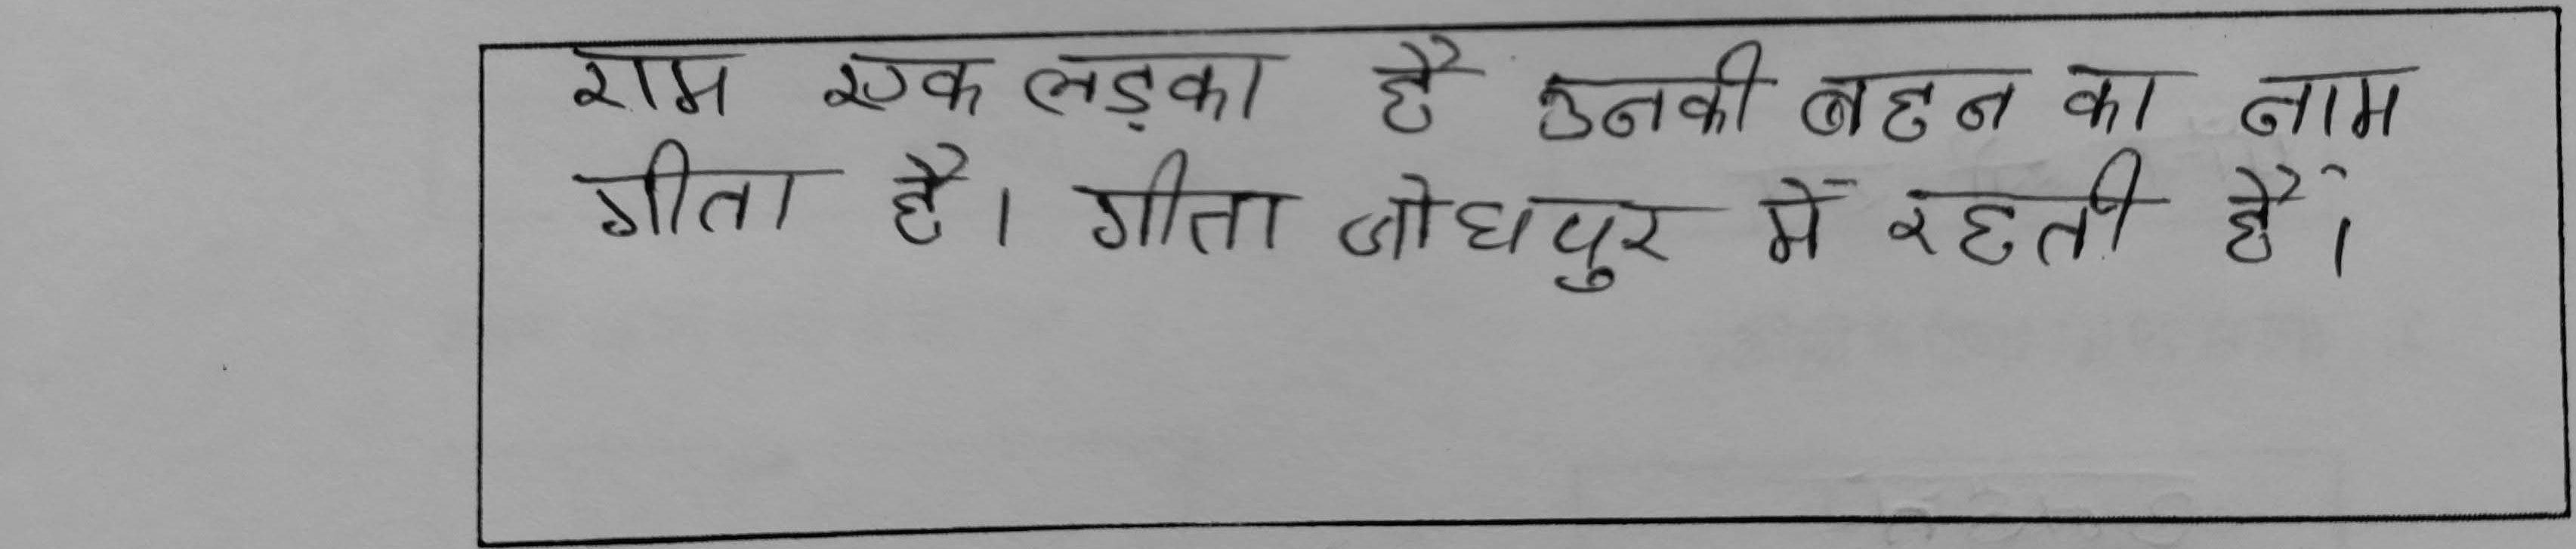 राम एक लड़का है उनकी बहन का नाम
गीता है। गीता जोधपुर में रहती हैं।